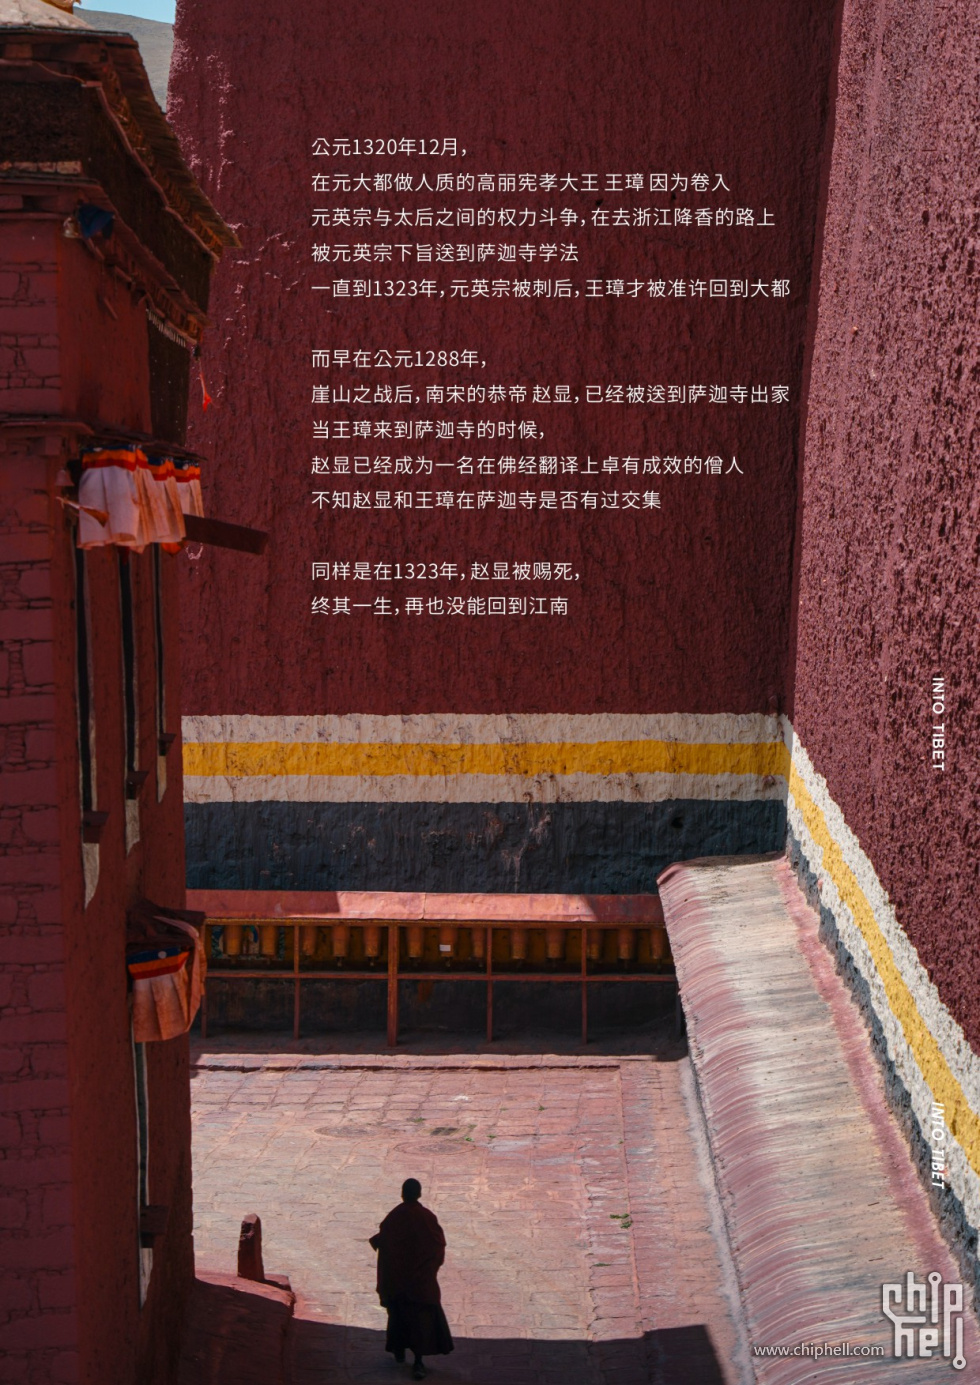 公元1320年12月，
在元大都做人质的高丽宪孝大王 王璋 因为卷入
元英宗与太后之间的权力斗争，在去浙江降香的路上
被元英宗下旨送到萨迦寺学法
一直到1323年，元英宗被刺后，王璋才被准许回到大都
而早在公元1288年，
崖山之战后，南宋的恭帝 赵显，已经被送到萨迦寺出家
当王璋来到萨迦寺的时候，
赵显已经成为一名在佛经翻译上卓有成效的僧人
不知赵显和王璋在萨迦寺是否有过交集
同样是在1323年，赵显被赐死，
终其一生，再也没能回到江南
INTO TIBET
INTO TIBET
www.chiphell.com
chip
hell